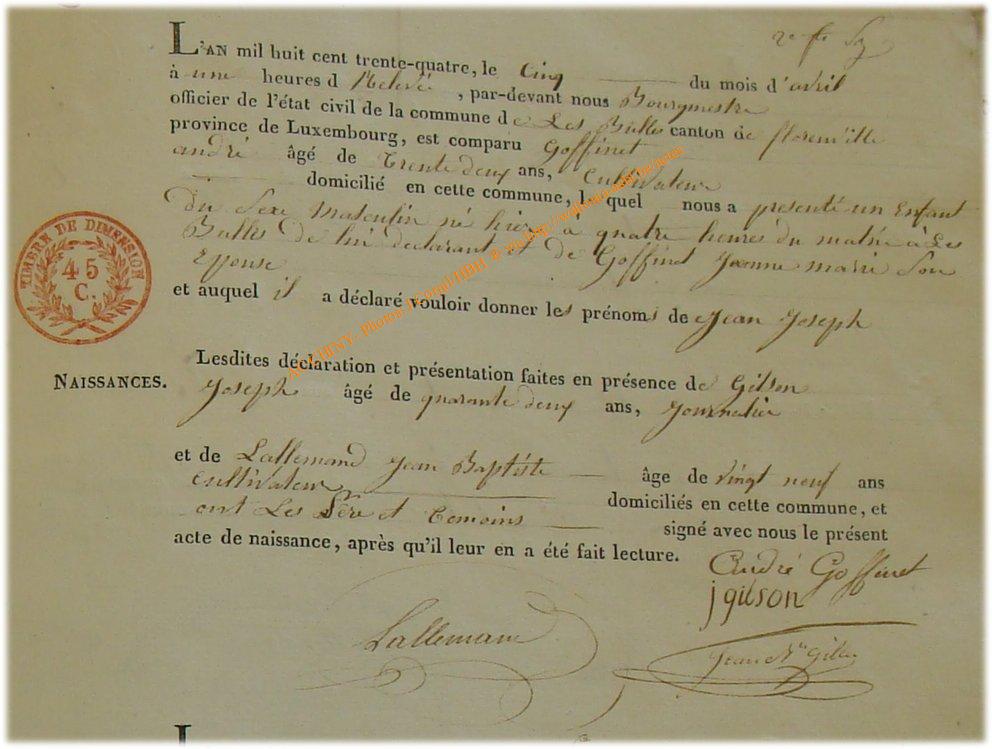 L'AN mil huit cent trente-quatre, le Cinq du mois d'avril
à une heures d Relevé, par-devant nous Bourgmestre
officier de l'état civil de la commune de Les Bulles canton de florenville
province de Luxembourg, est comparu Goffinet
andré âgé de Trente deux ans, Cultivateur
domicilié en cette commune, lequel nous a presenté un Enfant
Du Sexe Masculin né hier à quatre heures du matin à Les
Bulles de lui declarant et de Goffinet Jeanne marie Son
Epouse
et auquel il a déclaré vouloir donner les prénoms de Jean Joseph
TIMBRE DE DIMENSION
45
C.
NAISSANCES.
Lesdites déclaration et présentation faites en présence de Gilson
Joseph âgé de quarante deux ans, Journalier
et de Lallemand Jean Baptiste âge de vingt neuf ans
Cultivateur domiciliés en cette commune, et
ont Les Père et Temoins signé avec nous le présent
acte de naissance, après qu'il leur en a été fait lecture.
André Goffinet
j gilson
Lallemand